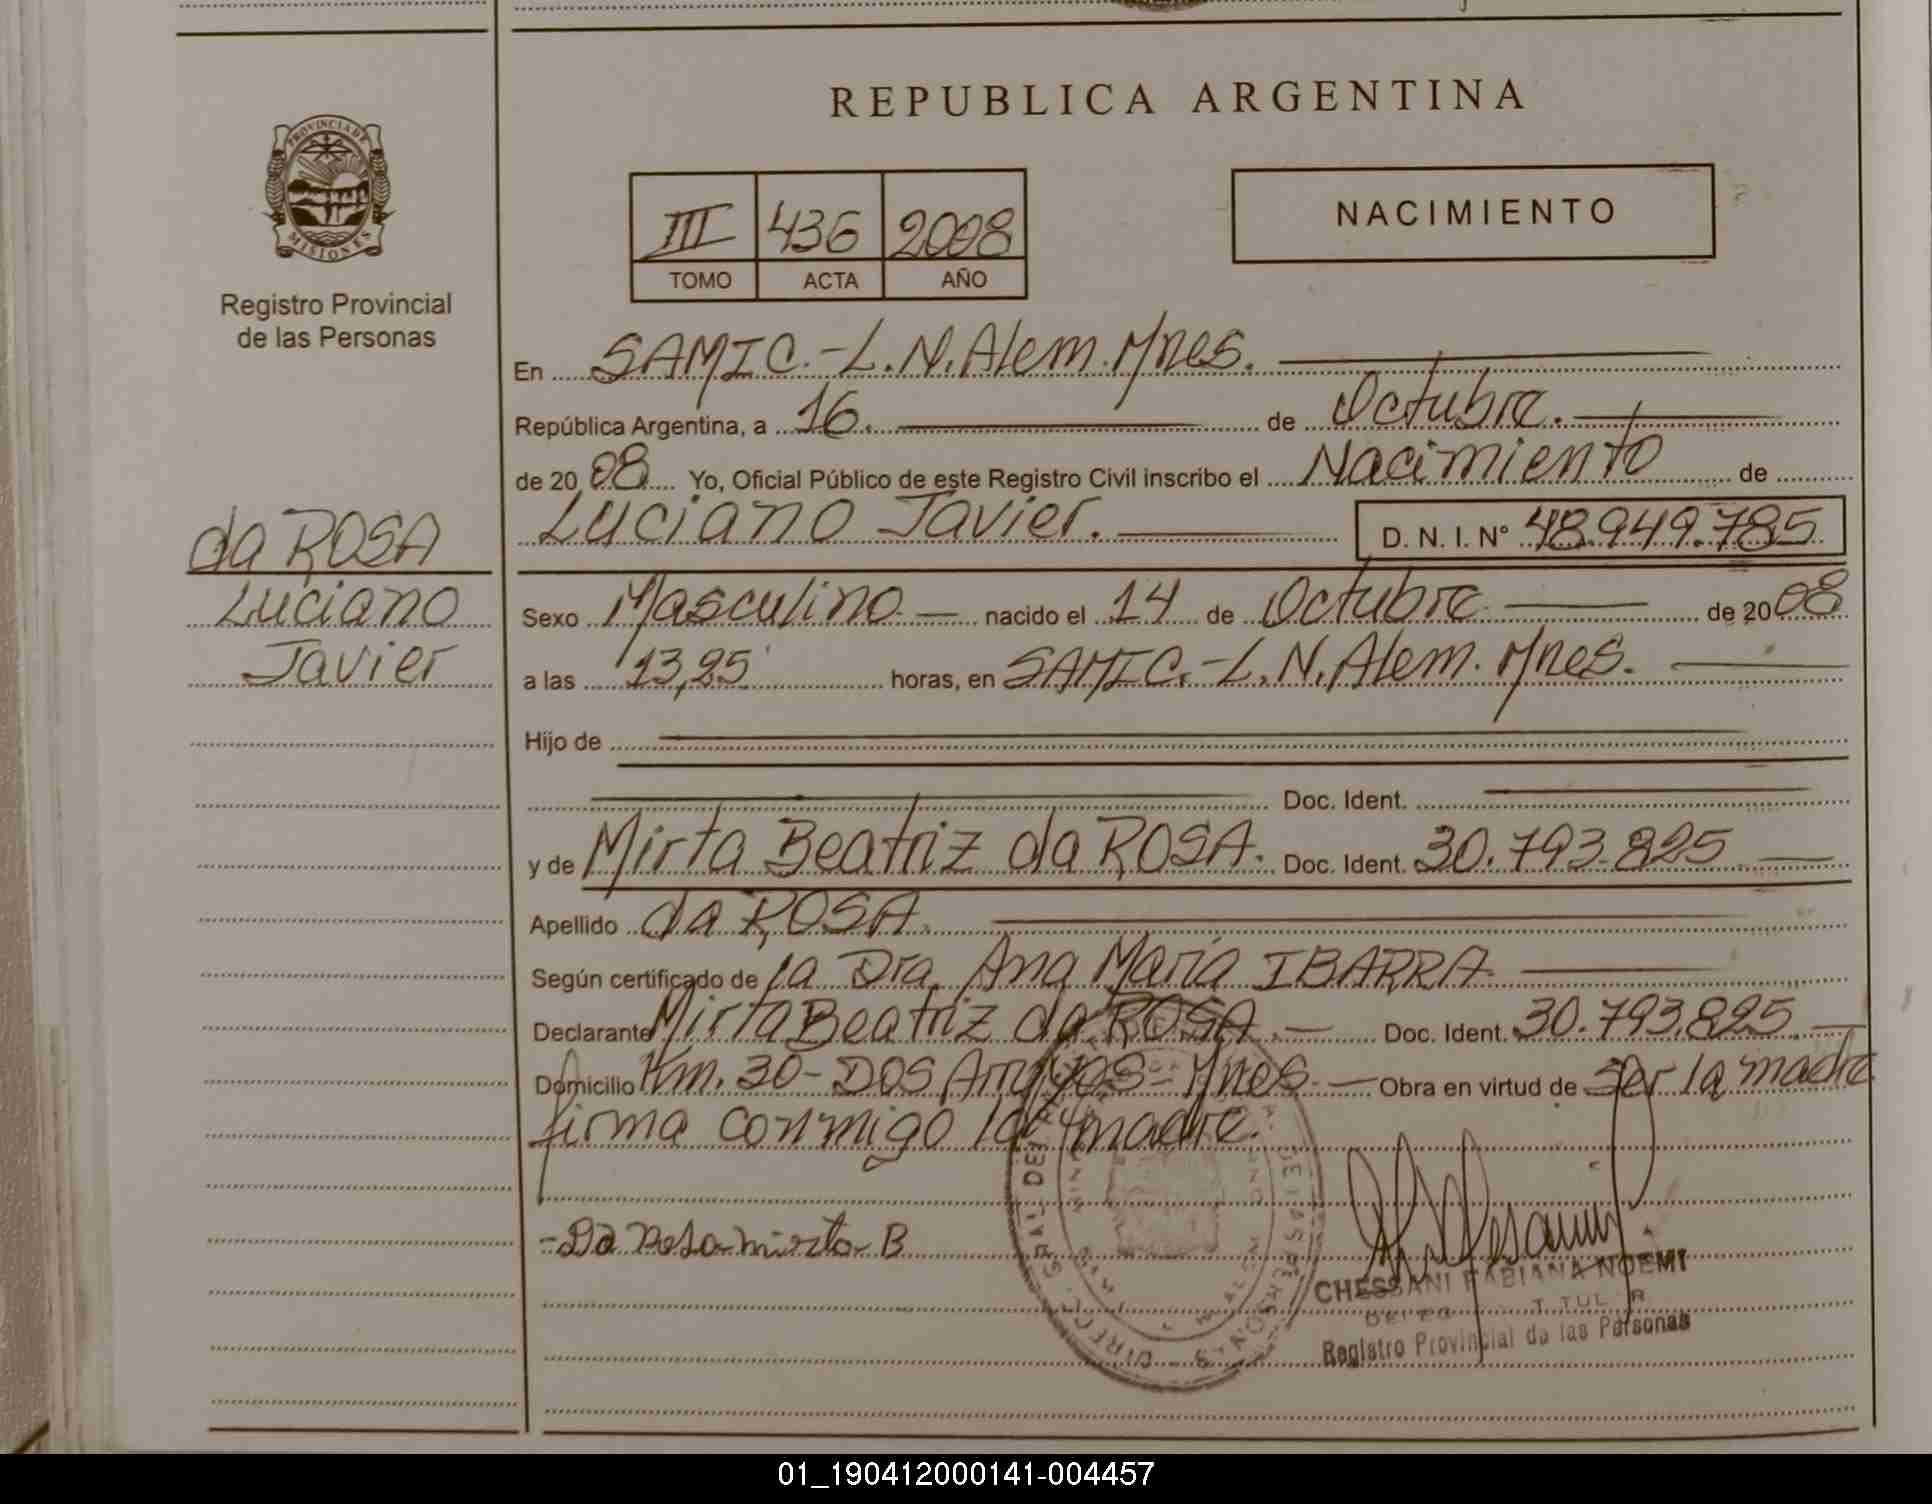 REPUBLICA ARGENTINA
PROVINCIA DE
MISIONES
Registro Provincial
de las Personas
III 436 2008
TOMO ACTA AÑO
NACIMIENTO
En SAMIC.-L.N.Alem.Mnes.
República Argentina, a 16. de Octubre.
de 2008 Yo, Oficial Público de este Registro Civil inscribo el Nacimiento de
Luciano Javier. D. N. I. N° 48.949.785
da ROSA
Luciano
Javier
Sexo Masculino nacido el 14 de Octubre de 2008
a las 13,25 horas, en SAMIC.-L.N.Alem.Mnes.
Hijo de
Doc. Ident.
y de Mirta Beatriz da ROSA. Doc. Ident. 30.793.825
Apellido da ROSA.
Según certificado de la Dra. Ana María IBARRA
Declarante Mirta Beatriz da ROSA. Doc. Ident. 30.793.825
Domicilio Km. 30-Dos Arroyos-Mnes. Obra en virtud de ser la madre
firma conmigo la madre.
-Da Rosa mirta B
CHESSANI FABIANA NOEMI
Registro Provincial de las Personas
01_190412000141-004457